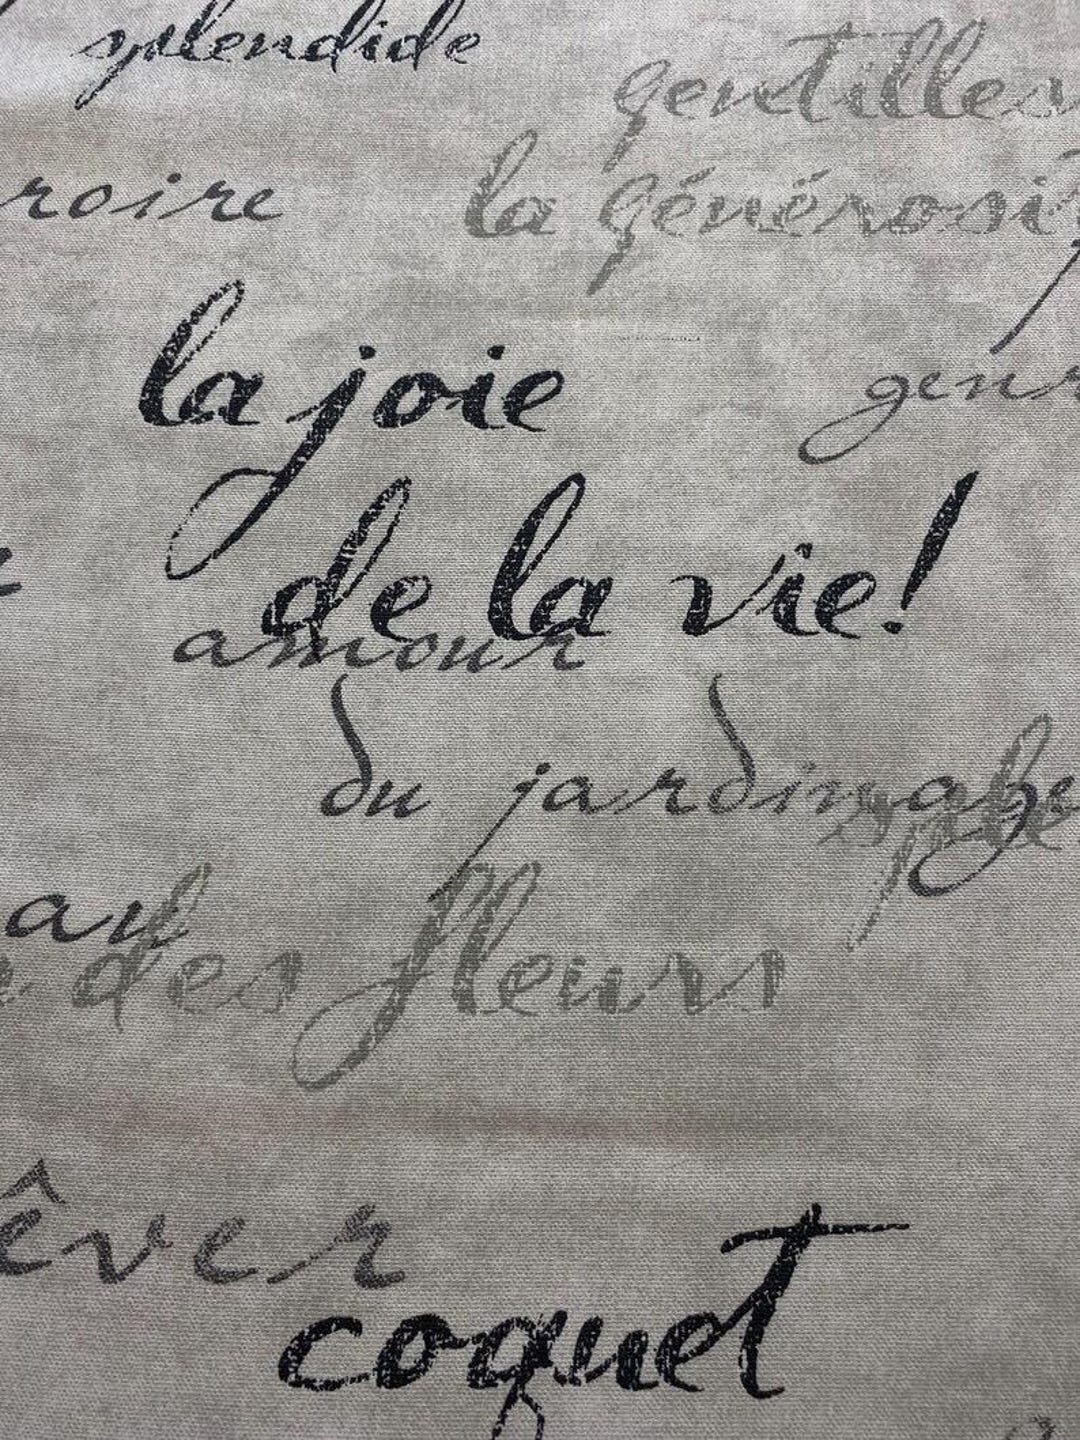 splendide
gentilles
roire
la générosit
la joie
genr
de la vie!
amour
du jardinage
au
des fleurs
êver
coquet